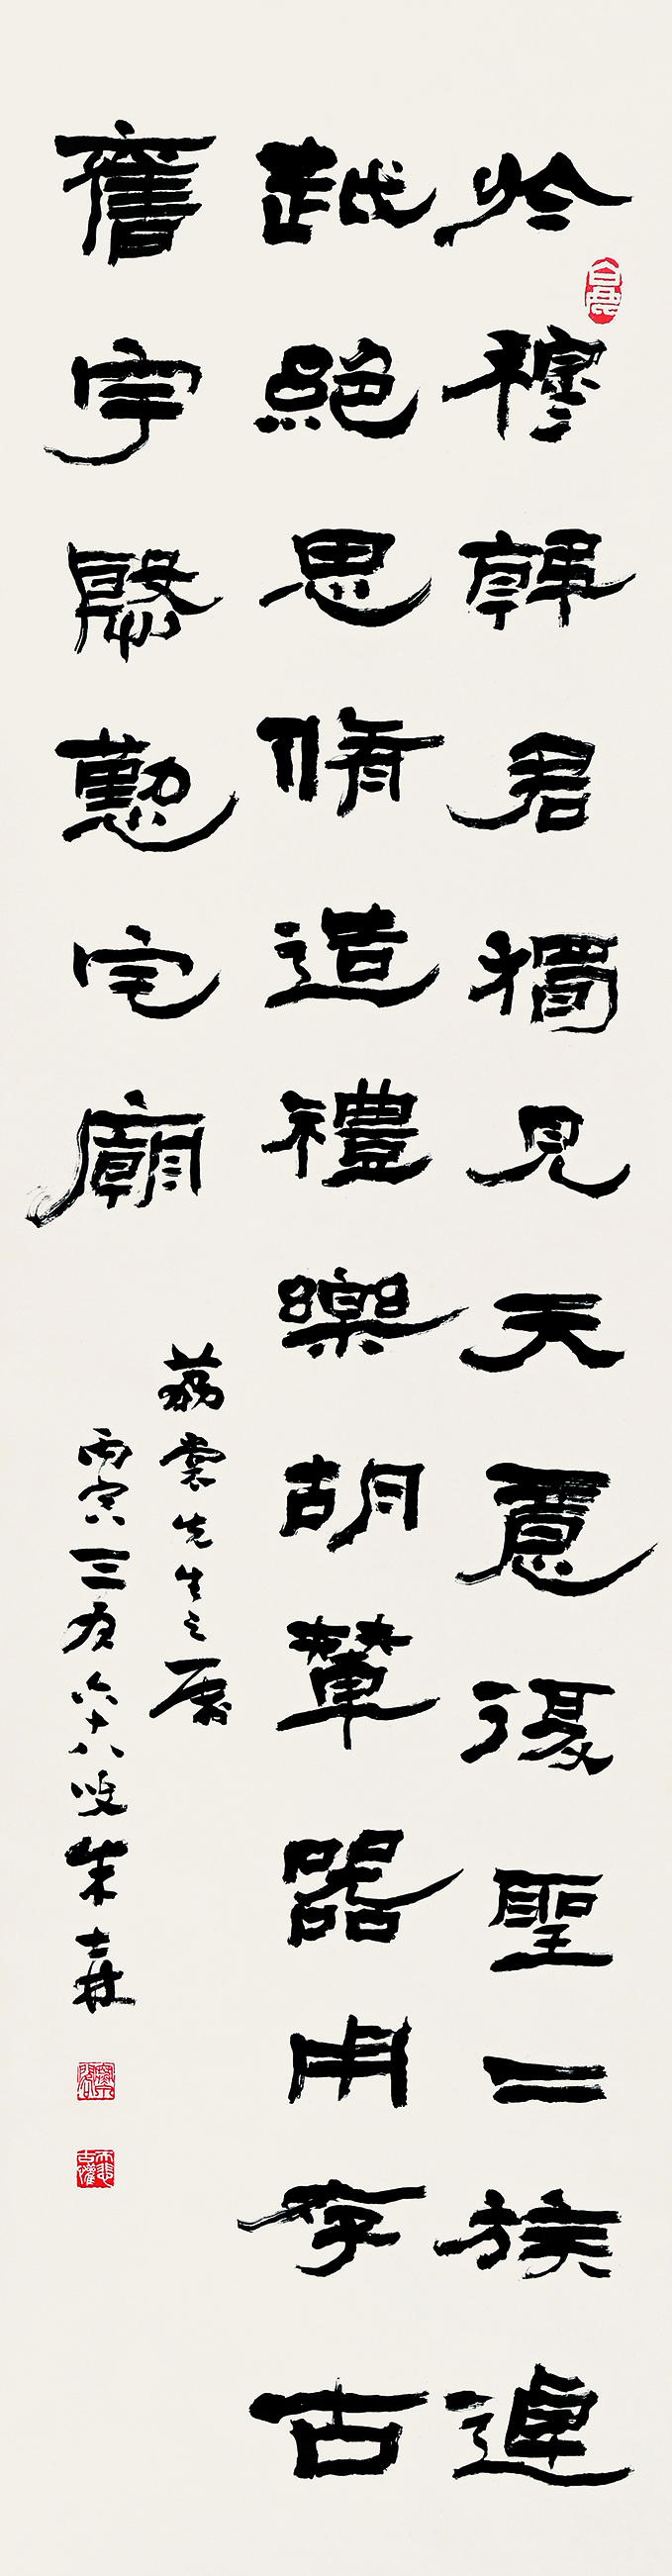 於穆韓君獨見天意復聖二族逴
越絕思脩造禮樂胡輦器用存古
舊宇慇懃宅廟
荔裳先生之屬
丙寅三月六十八叟朱